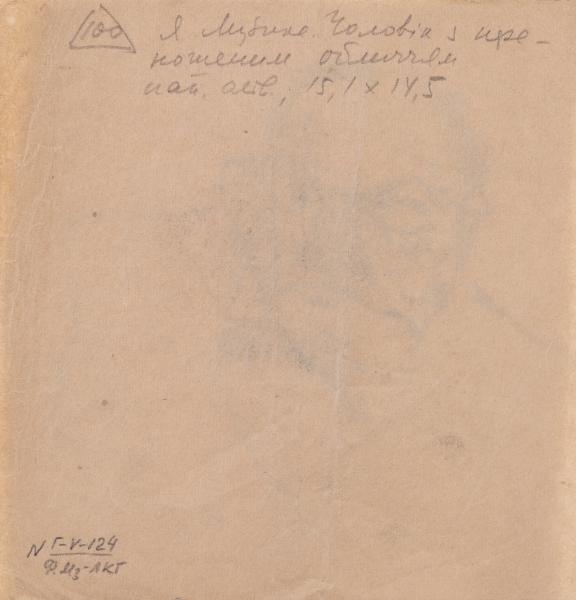 100 Я Музика. Чоловік з пре-
ношеним обличчям
пап. олів.; 15,1 x 14,5
N Г-V-124
Ф.Мз-ЛКГ